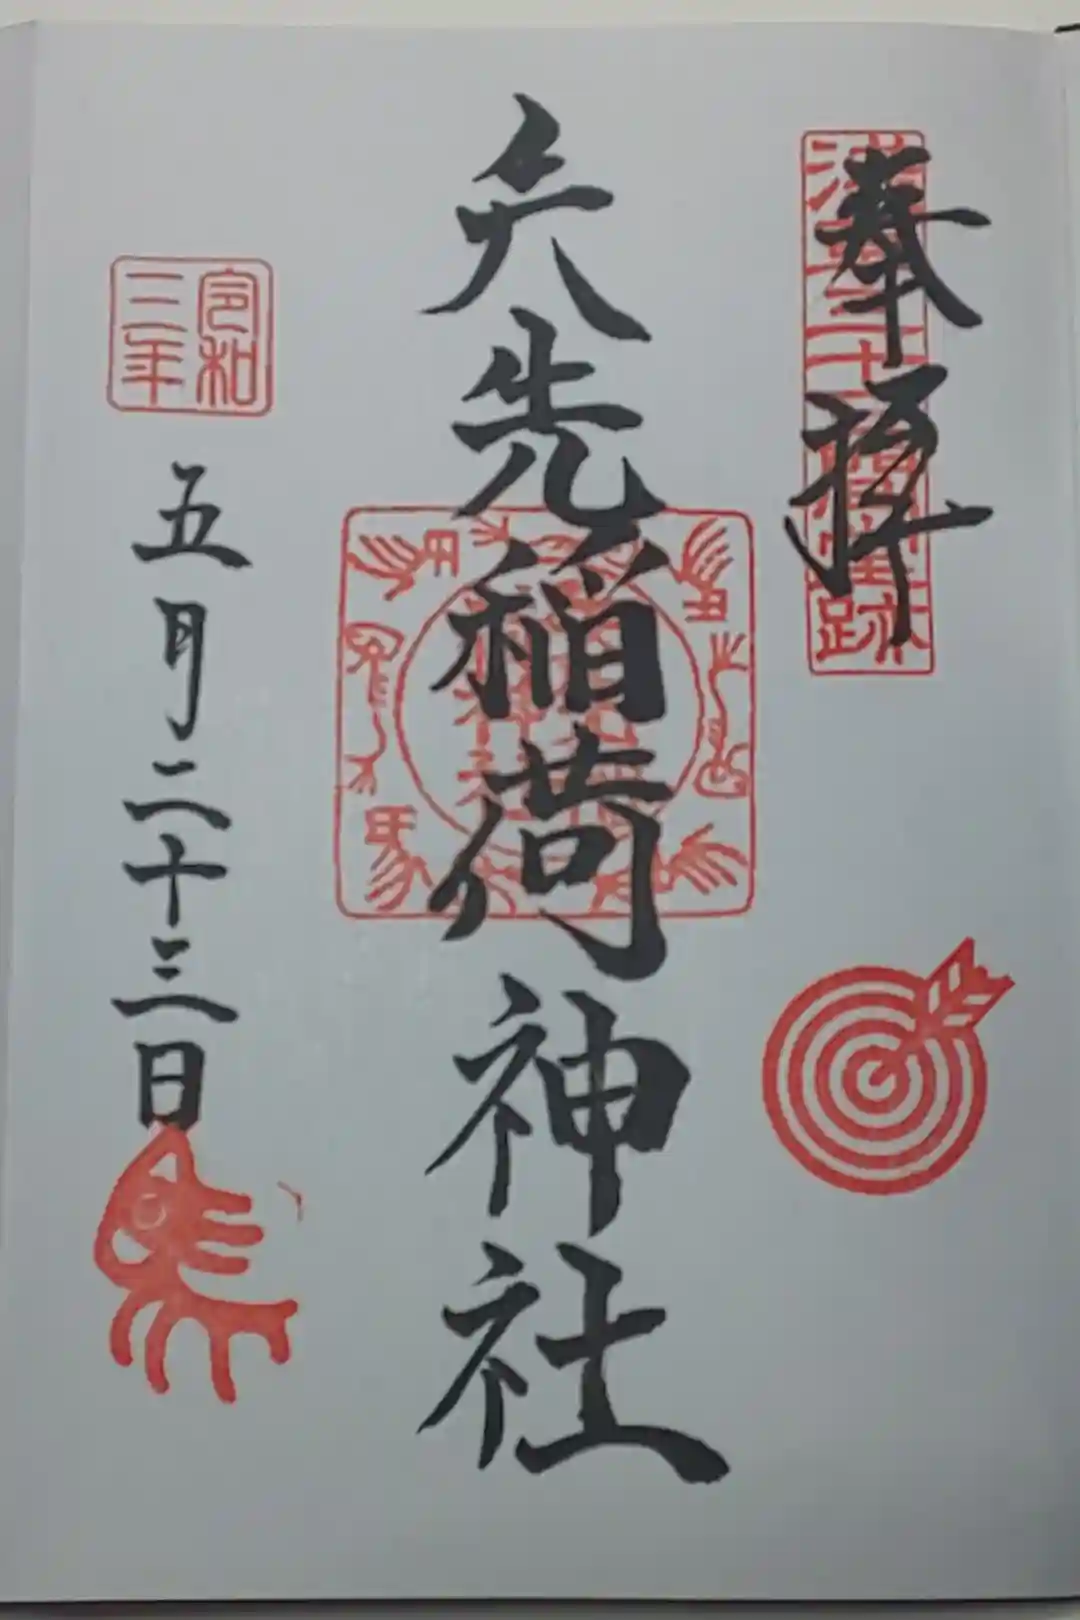 奉拝
浅草三十三間堂跡
矢先稲荷神社
令和三年
五月二十三日